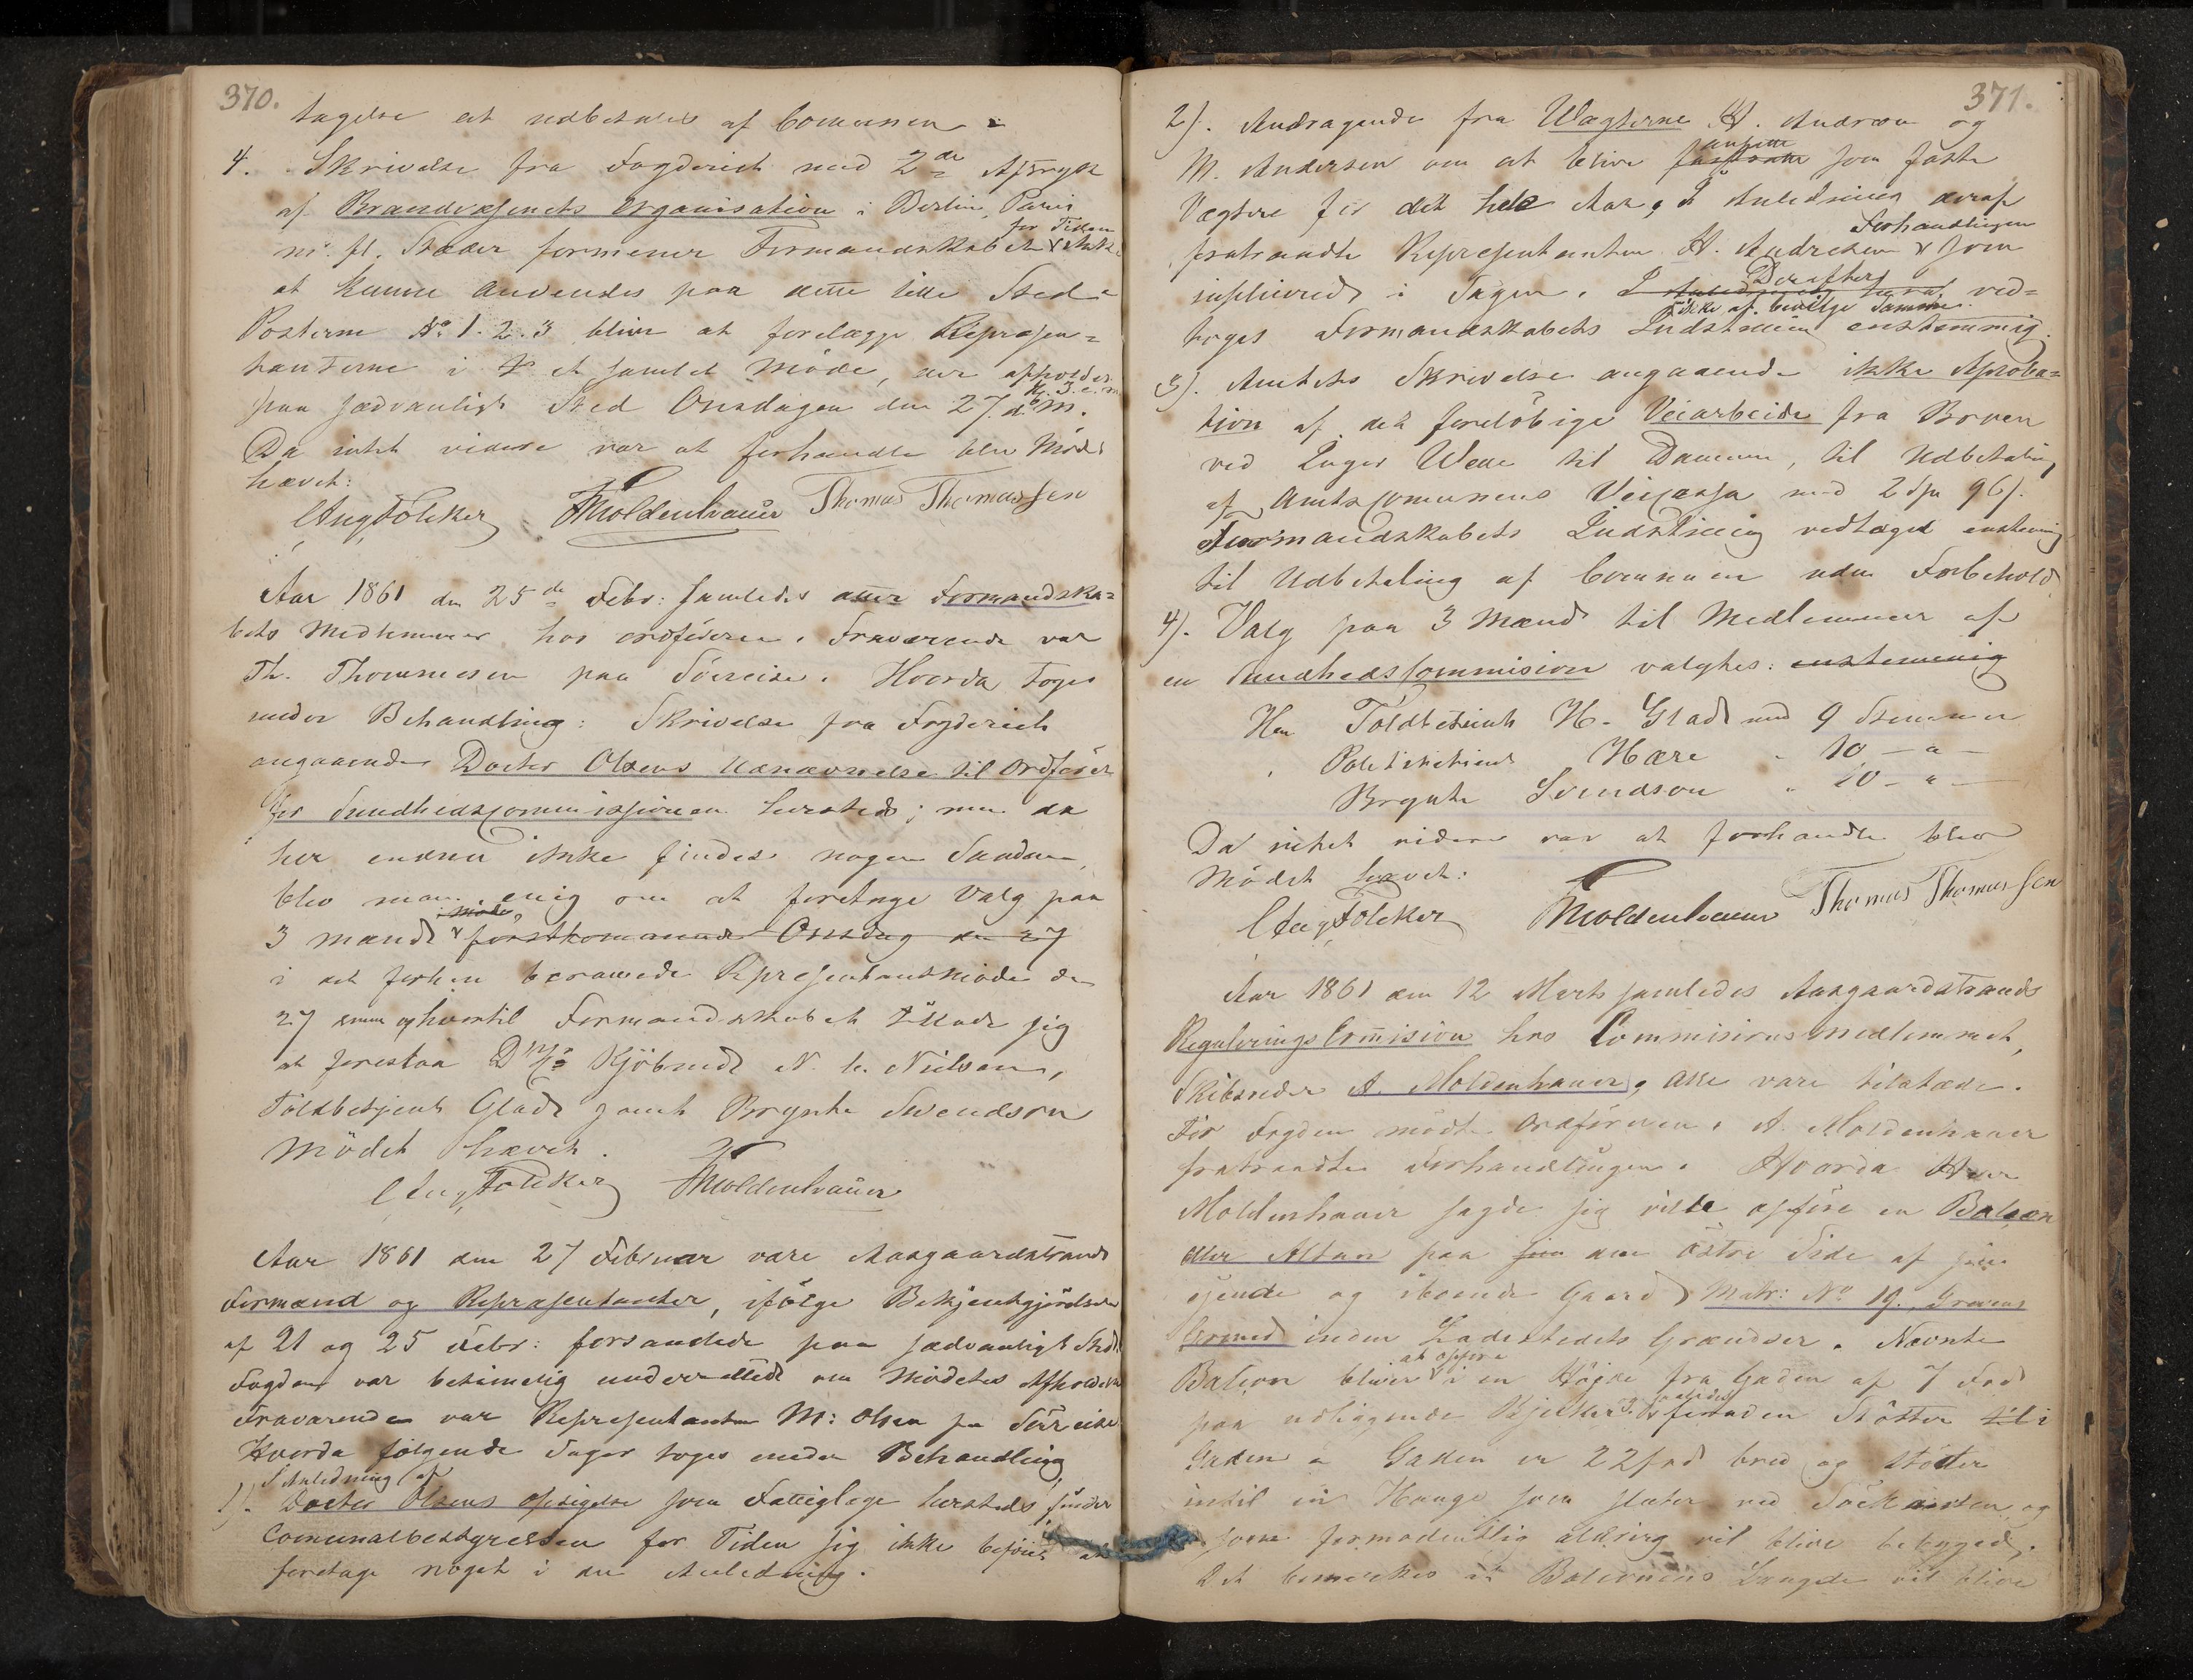 370.
tagelse at udbetales af Communen
4. Skrivelse fra Fogderiet med 2de Aftryk
af Brandvæsenets Organisation i Berlin, Paris
m. fl. Stæder formener Formandskabet for Tiden ikke
at kunne anvendes paa dette lille Sted
Posterne No 1. 2. 3 bliver at forelægge Repræsen=
tanterne i et samlet Møde, der afholdes
paa sædvanligt Sted Onsdagen den 27. d. M.
Da intet videre var at forhandle blev Mødet
hævet:
C Aug Fölcker AMoldenhauer Thomas Thomassen
Aar 1861 den 25de Febr: samledes atter Formandska=
bets Medlemmer hos Ordføreren. Fraværende var
Th. Thommesen paa Søreise. Hvorda toges
under Behandling: Skrivelse fra Fogderiet
angaaende Doctor Olsens Udnævnelse til Ordfører
for Sundhedscommissionen hersteds; men da
her endnu ikke findes nogen Saadan,
blev man enig om at foretage Valg paa
3 Mænd i Møde førstkommende Onsdag den 27
i det forhen berammede Repræsentantmøde den
27 og hvortil Formandskabet tillod sig
at forestaa Kjøbmd N. C. Nielsen,
Toldbetjent Glad samt Brynte Svendson
Mødet hævet.
C Aug Fölcker AMoldenhauer
Aar 1861 den 27 Februar vare Aasgaardstrands
Formænd og Repræsentanter, ifølge Bekjentgjørelse
af 21 og 25 Febr: forsamlede paa sædvanligt Sted
Fogden var betimelig underrettet om Mødets Afholdelse
Fraværende var Repræsentanten M: Olsen paa Søreise
Hvorda følgende Sager toges under Behandling
1). I Anledning af Doctor Olsens Opsigelse som Fattiglæge hersteds, finder
Comunalbestyrelsen for Tiden sig ikke beføiet at
foretage noget i den Anledning.
371.
2). Andragende fra Vægterne H. Andresen og
M. Andersen om at blive antagne som faste
Vægtere for det hele Aar, I Anledning deraf
fratraadte Repræsentanten H. Andresen Forhandlingen som
inhiberet i Sagen. Derefter ved=
toges Formandskabets Indstilling ikke at bevilge Samme enstemmig.
3). Amtets Skrivelse angaaende ikke Aproba=
tion af det foreløbige Veiarbeide fra Broen
ved Inger til Dammen, til Udbetaling
af Amtscommunens Veicassa med 2 Spd 96 s.
Formandskabets Indstilling vedtaget enstemmig
til Udbetaling af Communen uden Forbehold
4). Valg paa 3 Mænd til Medlemmer af
en Sundhedscommision valgtes: enstemmig
Hr. Toldbetjent H. Glad med 9 Stemmer
" Politibetjent Hære " 10 — " —
Brynte Svendson " 10 — " —
Da intet videre var at forhandle blev
Mødet hævet:
C Aug Fölcker AMoldenhauer Thomas Thomassen
Aar 1861 den 12 Marts samledes Aasgaardstrands
Regulerings Commision hos Commisionsmedlemmet,
Skibsreder A. Moldenhauer, alle vare tilstæde.
For Fogden mødte Ordføreren. A. Moldenhauer
fratraadte Forhandlingen. Hvorda Herr
Moldenhauer sagde sig ville opføre en Balcon
eller Altan paa sin den østre Side af sin
eiende og iboende Gaard Matr: No 19. Grevens
Grund inden Ladestedets Grændser. Nævnte
Balcon bliver at opføre i en Høide fra Gaden af 7 Fod
paa udliggende Bjelker foruden Støtter til i
Gaden. Gaden er 22 Fod bred og støder
intil en Hauge som støder ved Søekanten, og
som formodentlig aldrig vil blive bebygged.
Det bemerkes at Balconens Længde vil blive